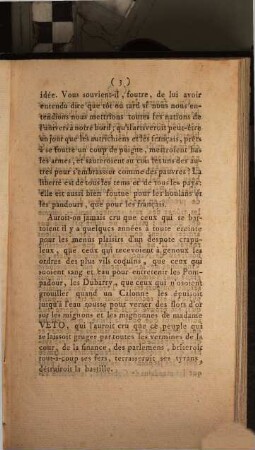 ( 3 )
idée. Vous souvient-il, foutre, de lui avoir
entendu dire que tôt ou tard si nous nous en-
tendions nous mettrions toutes les nations de
l'univers à notre bord; qu'il arriveroit peut-être
un jour que les autrichiens et les français, prêts
à se foutre un coup de peigne, mettroient bas
les armes, et sauteroient au cou les uns des au-
tres pour s'embrasser comme des pauvres? La
liberté est de tous les tems et de tous les pays;
elle est aussi bien foutue pour les houlans et
les pandours, que pour les français.
Auroit-on jamais cru que ceux qui se bat-
toient il y a quelques années à toute outrance
pour les menus plaisirs d'un despote crapu-
leux, que ceux qui recevoient à genoux les
ordres des plus vils coquins, que ceux qui
suoient sang et eau pour entretenir les Pom-
padour, les Dubarry, que ceux qui n'osoient
grouiller quand un Calonne les épuisoit
jusqu'à l'eau rousse pour verser des flots d'or
sur les mignons et les mignonnes de madame
VETO, qui l'auroit cru que ce peuple qui
se laissoit gruger par toutes les vermines de la
cour, de la finance, des parlemens, briseroit
tout-à-coup ses fers, terrasseroit ses tyrans,
détruiroit la bastille.